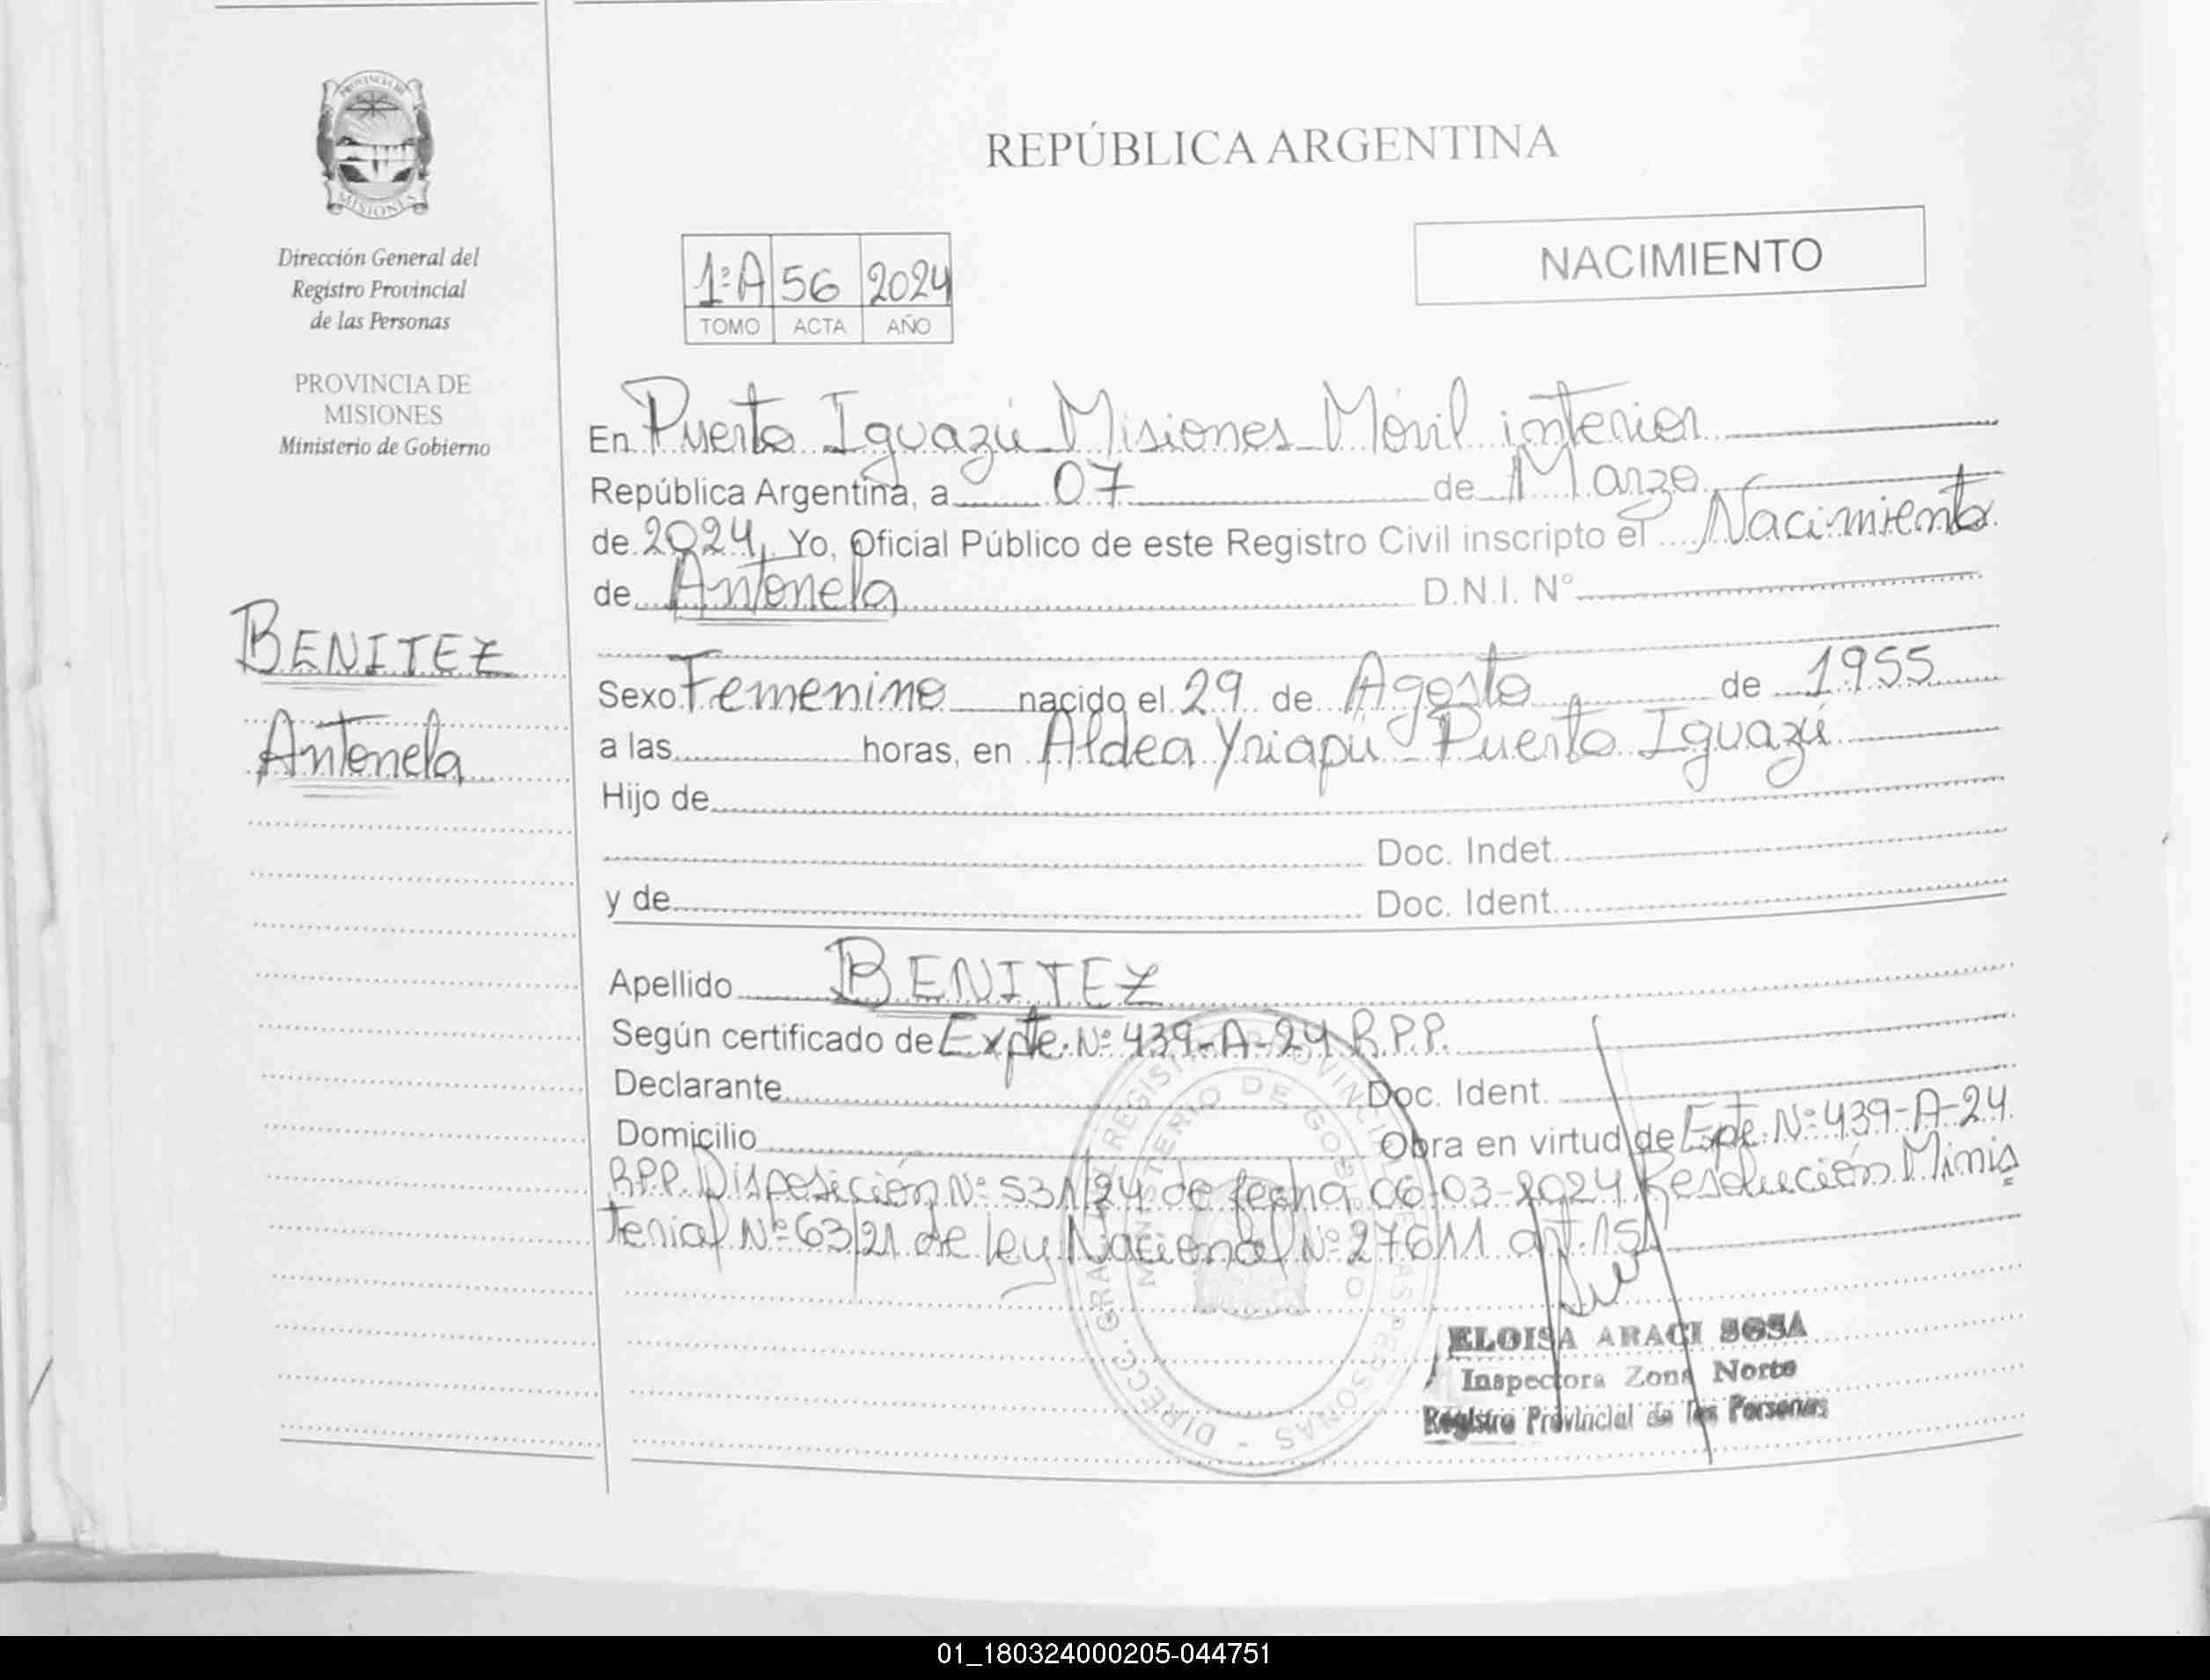 PROVINCIA DE
MISIONES
Dirección General del
Registro Provincial
de las Personas
PROVINCIA DE
MISIONES
Ministerio de Gobierno
BENITEZ
Antonela
REPÚBLICA ARGENTINA
1ºA 56 2024
TOMO ACTA AÑO
NACIMIENTO
En Puerto Iguazú Misiones Móvil interior
República Argentina, a 07 de Marzo
de 2024, Yo, Oficial Público de este Registro Civil inscripto el Nacimiento
de Antonela D.N.I. Nº
Sexo Femenino nacido el 29 de Agosto de 1955
a las horas, en Aldea Yriapú - Puerto Iguazú
Hijo de
Doc. Indet.
y de Doc. Ident.
Apellido BENITEZ
Según certificado de Expte. Nº 439-A-24 R.P.P.
Declarante Doc. Ident.
Domicilio Obra en virtud de Expte. Nº 439-A-24.
R.P.P. Disposición Nº 531/24 de fecha 06-03-2024 Resolución Minis
terial Nº 63/21 de ley Nacional Nº 27611 art. 15
DIRECC. GRAL. REGISTRO PROVINCIAL DE LAS PERSONAS -
MINISTERIO DE GOBIERNO
ELOISA ARACI SOSA
Inspectora Zona Norte
Registro Provincial de las Personas
01_180324000205-044751